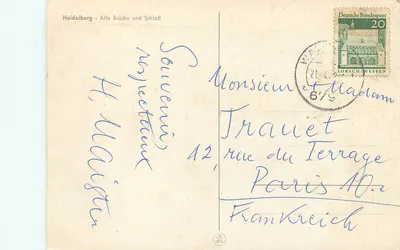 Heidelberg - Alte Brücke und Schloß
Souvenirs
respectueux
H. Maigtin
Deutsche Bundespost
20
LORSCH/HESSEN
679
Monsieur et Madame
Trauët
12, rue du Terrage
Paris 10e
Frankreich